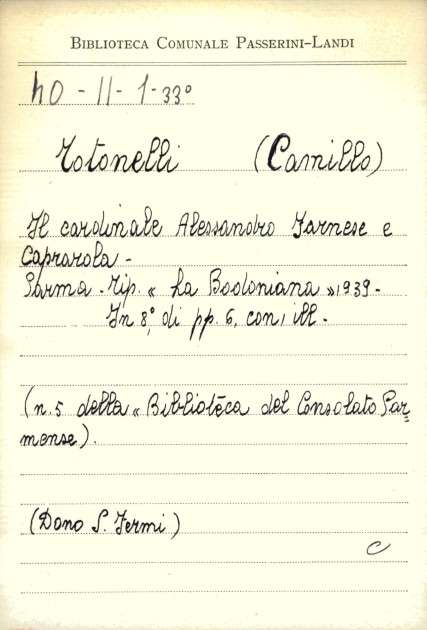 BIBLIOTECA COMUNALE PASSERINI-LANDI
40 - II - 1 - 33°
Totonelli (Camillo)
Il cardinale Alessandro Farnese e
Caprarola -
Parma - Tip. « La Bodoniana » 1939 -
In 8°, di pp. 6, con, ill -
(n. 5 della « Biblioteca del Consolato Par=
mense).
(Dono S. Fermi)
C